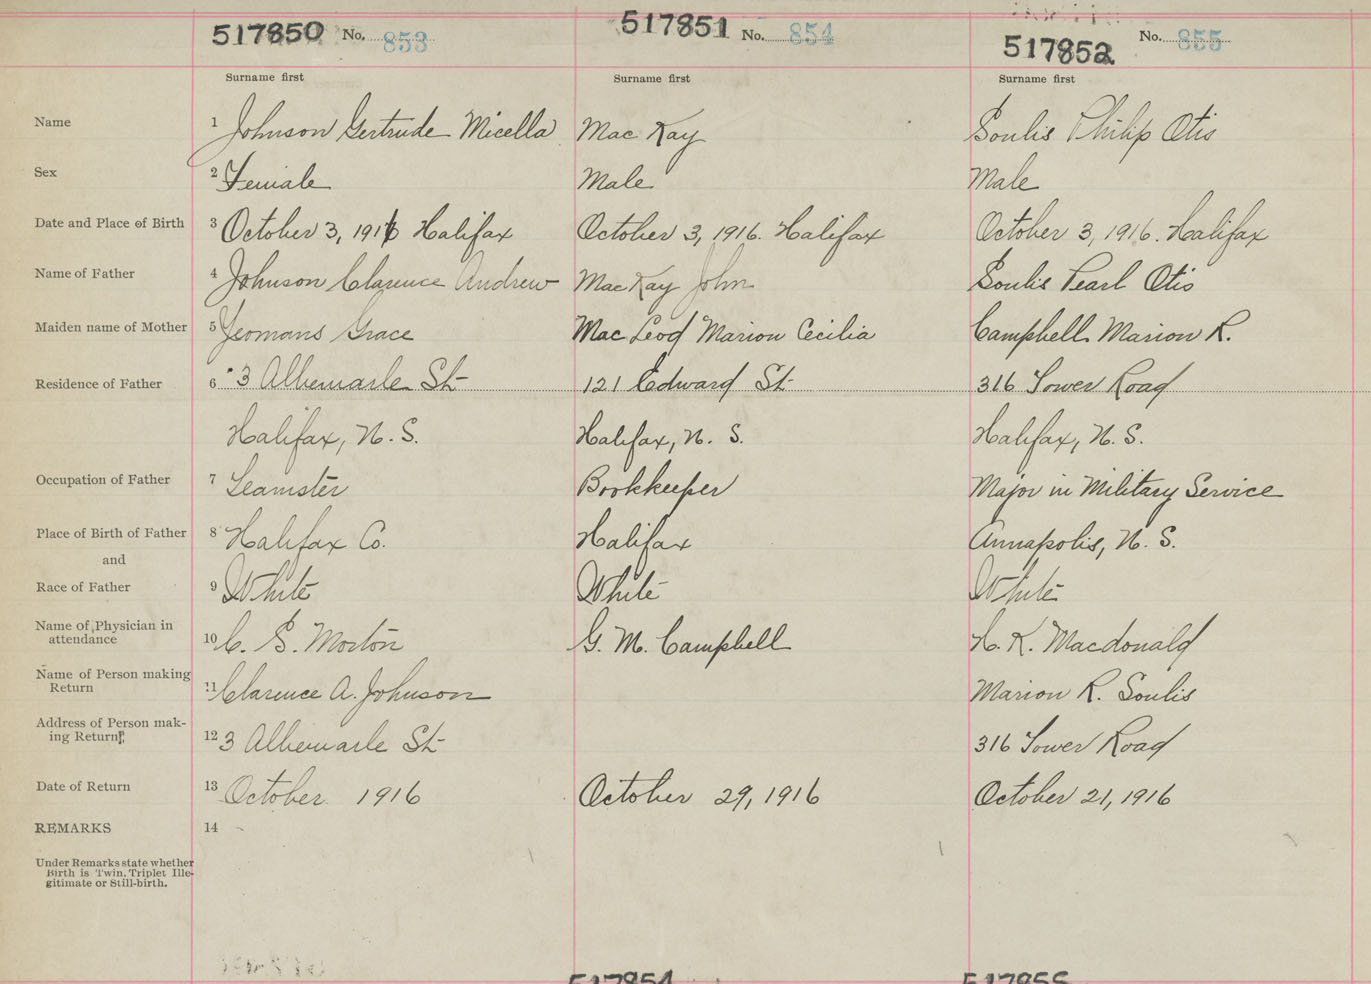 517850 No. 853 517851 No. 854 517852 No. 855
Surname first Surname first Surname first
Name 1 Johnson Gertrude Micella Mac Kay Soulis Philip Otis
Sex 2 Female Male Male
Date and Place of Birth 3 October 3, 1916 Halifax October 3, 1916. Halifax October 3, 1916. Halifax
Name of Father 4 Johnson Clarence Andrew Mac Kay John Soulis Pearl Otis
Maiden name of Mother 5 Yeomans Grace Mac Leod Marion Cecilia Campbell Marion R.
Residence of Father 6 3 Albemarle St 121 Edward St 316 Tower Road
Halifax, N. S. Halifax, N. S. Halifax, N. S.
Occupation of Father 7 Teamster Bookkeeper Major in Military Service
Place of Birth of Father 8 Halifax Co. Halifax Annapolis, N. S.
and
Race of Father 9 White White White
Name of Physician in
attendance 10 C. S. Morton G. M. Campbell H. K. Macdonald
Name of Person making
Return 11 Clarence A. Johnson Marion R. Soulis
Address of Person mak-
ing Return 12 3 Albemarle St 316 Tower Road
Date of Return 13 October 1916 October 29, 1916 October 21, 1916
REMARKS 14
Under Remarks state whether
Birth is Twin, Triplet Ille-
gitimate or Still-birth.
517854 517855